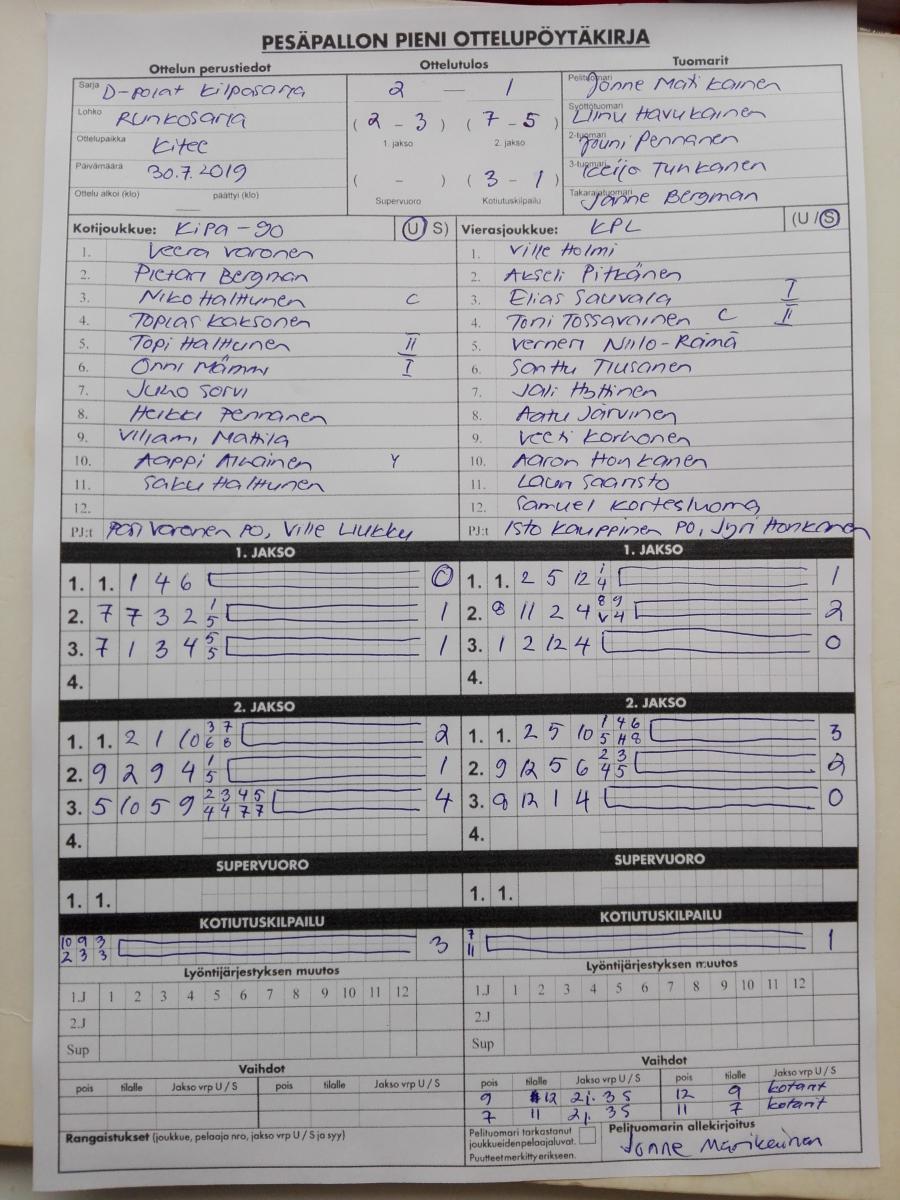 PESÄPALLON PIENI OTTELUPÖYTÄKIRJA
Ottelun perustiedot Ottelutulos Tuomarit
Sarja D-pojat Kilpasarja 2 — 1 Pelituomari Jonne Matikainen
Lohko Runkosarja ( 2 - 3 ) ( 7 - 5 ) Syöttötuomari Liinu Havukainen
1. jakso 2. jakso
Ottelupaikka Kitee 2-tuomari Jouni Pennanen
Päivämäärä 30.7.2019 ( - ) ( 3 - 1 ) 3-tuomari Tunkanen
Ottelu alkoi (klo) päättyi (klo) Supervuoro Kotiutuskilpailu Takarajatuomari Janne Bergman
Kotijoukkue: KiPa -90 (U S) Vierasjoukkue: KPL (U / S)
1. Veera Varonen 1. Ville Holmi
2. Pietari Bergman 2. Akseli Pitkänen
3. Niko Halttunen C 3. Elias Sauvala I
4. Topias Kaksonen 4. Toni Tossavainen C II
5. Topi Halttunen II 5. Verneri Niilo-Rämä
6. Onni Mämmi I 6. Santtu Tiusanen
7. Juho Sorvi 7. Jali Hyttinen
8. Heikki Pennanen 8. Aatu Järvinen
9. Viljami Mattila 9. Veeti Korhonen
10. Aappi Y 10. Aaron Honkanen
11. Saku Halttunen 11. Lauri Saaristo
12. 12. Samuel Kortesluoma
PJ:t Pasi Varonen PO, Ville Liukku PJ:t Isto Kauppinen PO, Jyri Honkanen
1. JAKSO 1. JAKSO
1. 1. 1 4 6 0 1. 1. 2 5 12 1/4 1
2. 7 7 3 2 1/5 1 2. 8 11 2 4 2
3. 7 1 3 4 5/5 1 3. 1 2 12 4 0
4. 4.
2. JAKSO 2. JAKSO
1. 1. 2 1 10 3/6 7/8 2 1. 1. 2 5 10 3
2. 9 2 9 4 1/5 1 2. 9 12 5 6 2/4 3/5 2
3. 5 10 5 9 2/4 3/4 4/7 5/7 4 3. 8 12 1 4 0
4. 4.
SUPERVUORO SUPERVUORO
1. 1. 1. 1.
KOTIUTUSKILPAILU KOTIUTUSKILPAILU
10/2 9/3 3/3 3 7/11 1
Lyöntijärjestyksen muutos Lyöntijärjestyksen muutos
1.J 1 2 3 4 5 6 7 8 9 10 11 12 1.J 1 2 3 4 5 6 7 8 9 10 11 12
2.J 2.J
Sup Sup
Vaihdot Vaihdot
pois tilalle Jakso vrp U / S pois tilalle Jakso vrp U / S pois tilalle Jakso vrp U / S pois tilalle Jakso vrp U / S
9 12 2j. 3S 12 9 kotarit
7 11 2j. 3S 11 7 kotarit
Rangaistukset (joukkue, pelaaja nro, jakso vrp U / S ja syy) Pelituomari tarkastanut joukkueiden pelaajaluvat. Pelituomarin allekirjoitus
Puutteet merkitty erikseen. Jonne Matikainen